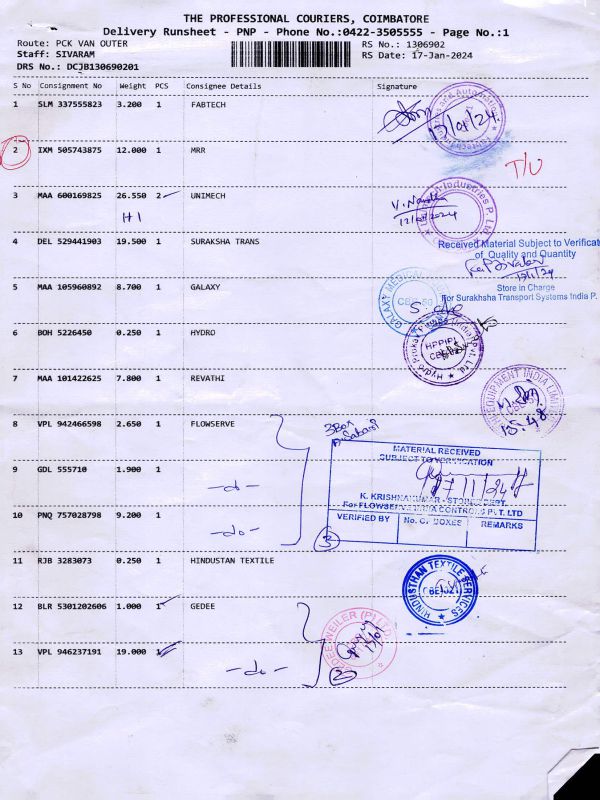 THE PROFESSIONAL COURIERS, COIMBATORE
Delivery Runsheet - PNP - Phone No.:0422-3505555 - Page No.:1
Route: PCK VAN OUTER
RS No.: 1306902
Staff: SIVARAM
RS Date: 17-Jan-2024
DRS No.: DCJB130690201
S No Consignment No Weight PCS Consignee Details Signature
1 SLM 337555823 3.200 1 FABTECH
2 IXM 505743875 12.000 1 MRR
T/U
3 MAA 600169825 26.550 2 UNIMECH
H1
4 DEL 529441903 19.500 1 SURAKSHA TRANS
Received Material Subject to Verificat
of Quality and Quantity
Store in Charge
For Surakhsha Transport Systems India P.
5 MAA 105960892 8.700 1 GALAXY
GALAXY MEDICAL
6 BOH 5226450 0.250 1 HYDRO
HPPIPL
7 MAA 101422625 7.800 1 REVATHI
EQUIPMENT INDIA LIMITED
8 VPL 942466598 2.650 1 FLOWSERVE
3 Box
MATERIAL RECEIVED
SUBJECT TO VERIFICATION
9 GDL 555710 1.900 1 -do-
K. KRISHNAKUMAR - STORES DEPT.
For FLOWSERVE INDIA CONTROLS PVT. LTD
10 PNQ 757028798 9.200 1 -do-
VERIFIED BY No. OF BOXES REMARKS
3
11 RJB 3283073 0.250 1 HINDUSTAN TEXTILE
HINDUSTHAN TEXTILE SERVICES
12 BLR 5301202606 1.000 1 GEDEE
13 VPL 946237191 19.000 1 -do-
GEDEE WEILER (P) LTD
2